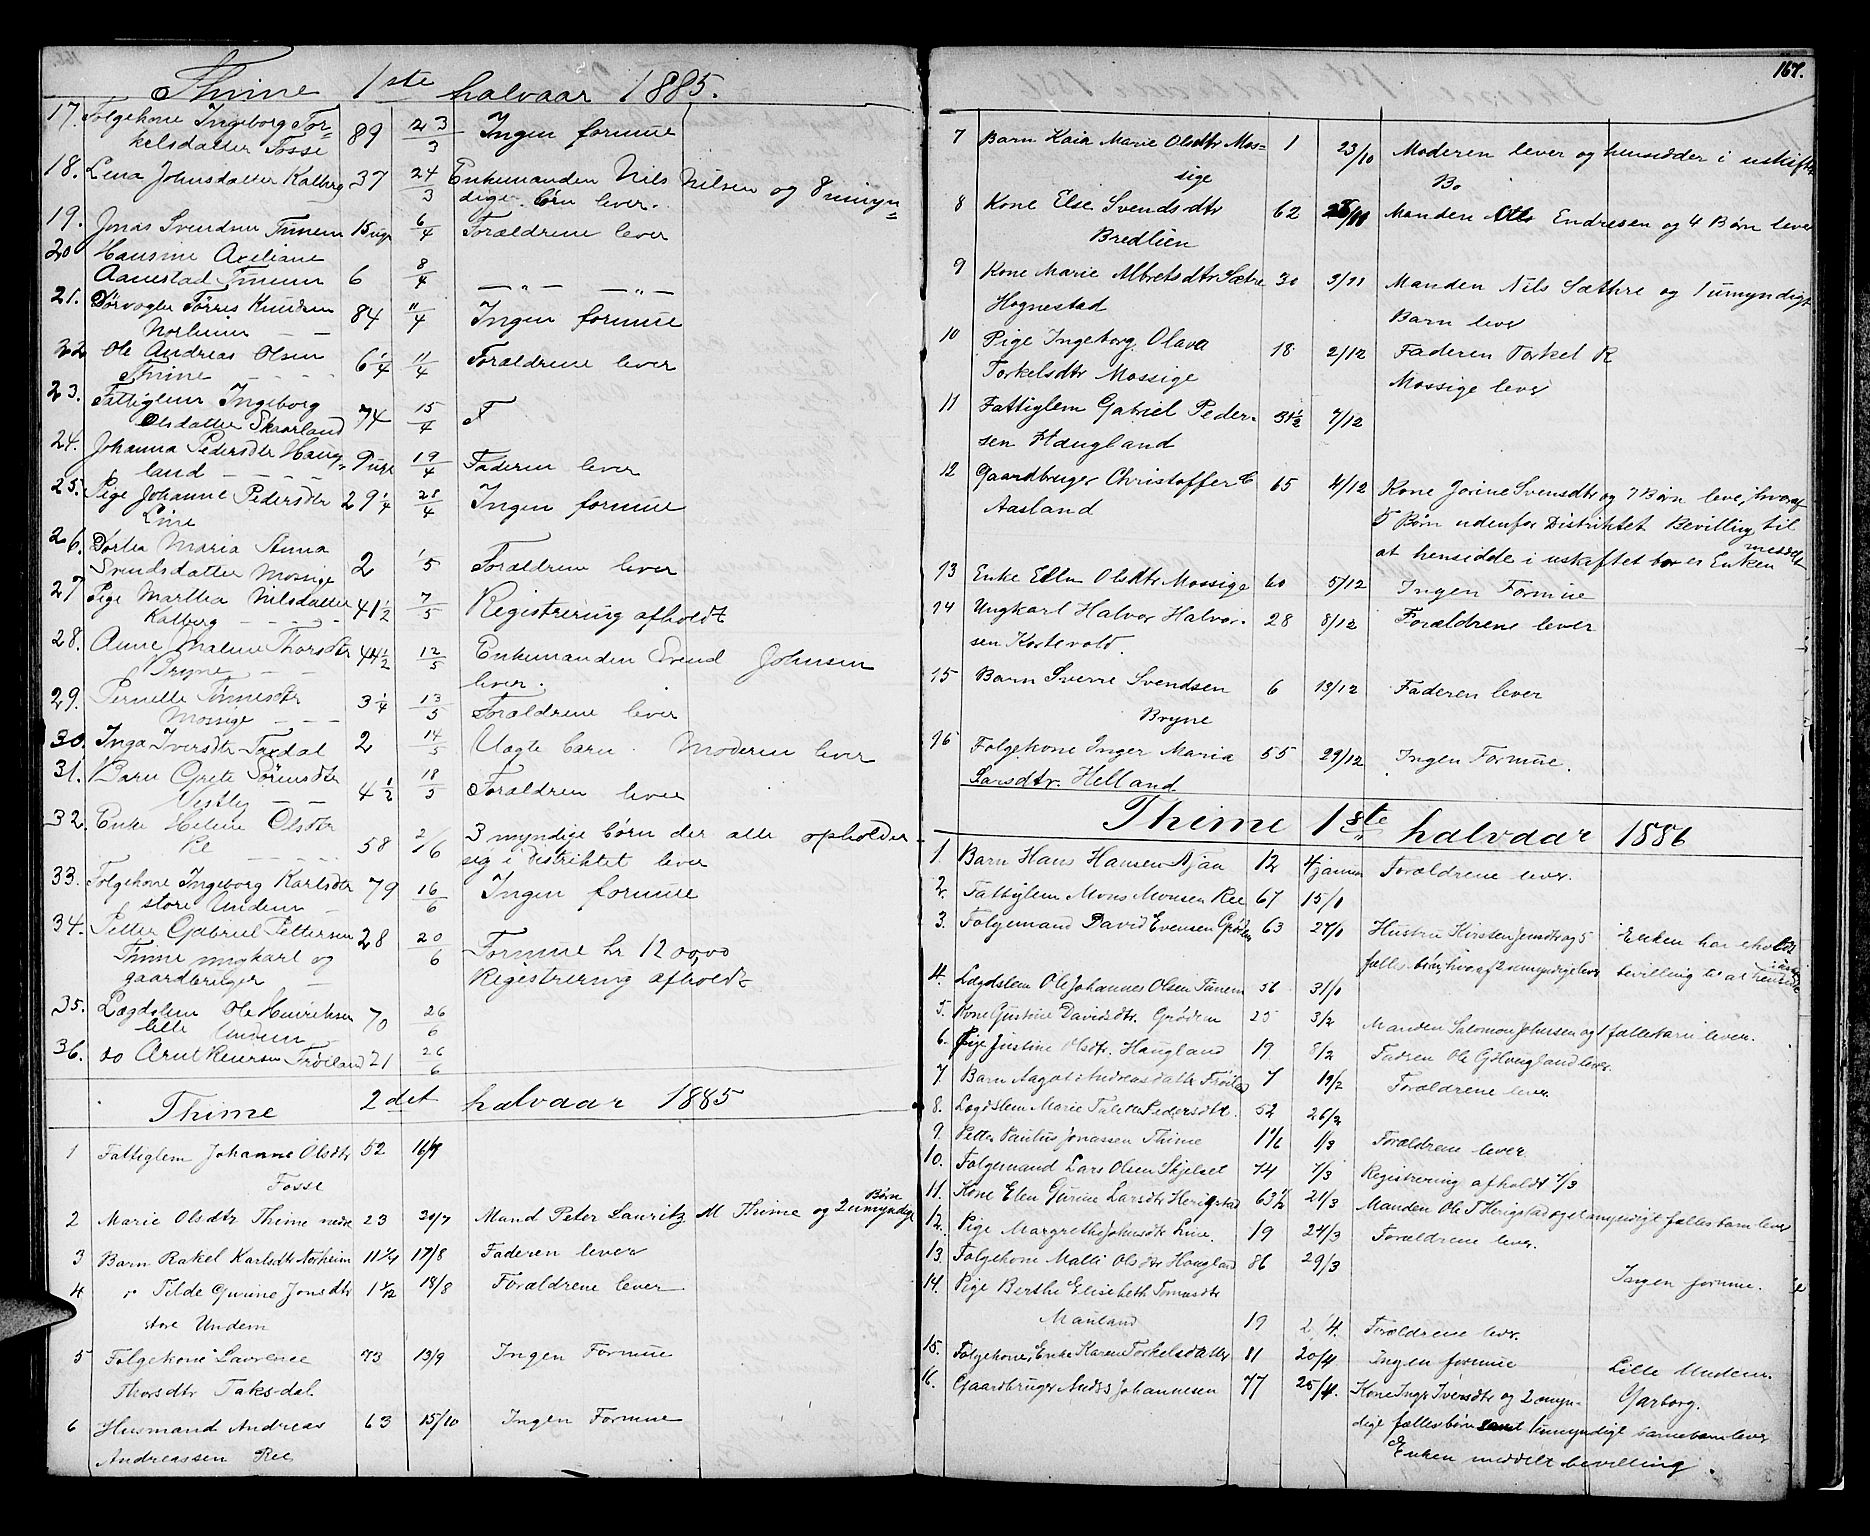 Thime 1ste halvaar 1885.
17. Folgekone Ingeborg Tor-
kelsdatter Fosse 89 23/3 Ingen formue
18. Lena Johnsdatter Kalberg 37 24/3 Enkemanden Nils Nilsen og 8 umyn-
dige børn lever.
19. Jonas Svendsen Tunem 15 uger 6/4 Forældrene lever
20 Hansine Axeliane
Aanestad Tunem 6 8/4 — " — — " —
21. Tørris Knudsen
Norheim — — 84 11/4 Ingen formue
22 Ole Andreas Olsen
Thime — — — — 6 1/4 11/4 Forældrene lever
23. Fattiglem Ingeborg
Olsdatter Skrorland 74 15/4 F
24. Johanna Pedersdtr Haug-
land — — — — 9 uger 19/4 Faderen lever
25. Pige Johanne Pedersdtr
Line 29 1/4 25/4 Ingen formue
26. Dortea Maria Anna
Svendsdatter Mossige 2 1/5 Forældrene lever
27 Pige Martha Nilsdatter
Kalberg — — — — 41 1/2 7/5 Registrering afholdt
28. Anne Malene Thorsdtr
Bryne — — 44 1/2 12/5 Enkemanden Svend Johnsen
lever.
29. Pernille Tønnesdtr
Mossige — — — 3 1/4 13/5 Forældrene lever
30. Inga Iversdtr Taxdal 2 14/5 Uægte barn. Moderen lever
31. Barn Grete Sørensdtr
Vestly — — 4 1/2 18/5 Forældren lever
32. Enke Helene Olsdtr
Re — — — — 58 2/6 3 myndige børn der alle opholder
sig i distriktet lever
33. Folgekone Ingeborg Karlsdtr
store Undem — 79 16/6 Ingen formue
34. Petter Gabriel Pettersen
Thime ungkarl og
gaardbruger — 28 20/6 Formue kr 1200,00
Registrering afholdt
35. Lægdslem Ole Henriksen
lille Undem — 70 26/6
36. do Arnt Reiersen Frøiland 21 26/6
Thime 2det halvaar 1885
1 Fattiglem Johanne Olsdtr 52 16/7
Fosse
2 Marie Olsdtr Thime 23 20/7 Mand Peter Lauritz M Thime og 2 umyndige
Børn
3 Barn Rakel Karlsdtr Norheim 11 1/4 17/8 Faderen lever
4 " Tilde Gurine Jonsdtr 1 1/12 18/8 Forældrene lever
store Undem
5 Folgekone Laurence 73 13/9 Ingen Formue
Thorsdtr Taksdal.
6 Husmand Andreas 63 15/10 Ingen Formue
Andreassen Ree
167.
7 Barn Kaia Marie Olsdtr Mos- 1 23/10 Moderen lever og hensidder i uskiftet
sige Bo
8 Kone Else Svendsdtr 62 Manden Endresen og 4 Børn lever
Bredlien
9 Kone Marie Albretsdtr Sætre 30 3/11 Manden Nils Sæthre og 1 umyndigt
Hognestad Barn lever
10 Pige Ingeborg Olava 18 2/12 Faderen Torkel R
Torkelsdtr Mossige Mossige lever
11 Fattiglem Gabriel Peder- 31 1/2 7/12
sen Haugland
12 Gaardbruger Christoffer C 65 4/12 Kone Jorine Svensdtr og 7 Børn lever, hvoraf
Aasland 5 Børn udenfor Distriktet Bevilling til
at hensidde i uskiftet bo er Enken meddelt
13 Enke Ellen Olsdtr Mossige 60 5/12 Ingen Formue
14 Ungkarl Halvor Halvor- 28 8/12 Forældrene lever
sen Kortevold.
15 Barn Sverre Svendsen 6 13/12 Faderen lever
Bryne
16 Folgekone Inger Maria 55 29/12 Ingen Formue.
Larsdtr. Helland
Thime 1ste halvaar 1886
1. Barn Hans Hansen Njaa 12 4 januar Forældrene lever.
2. Fattiglem Mons Monsen Ree 67 15/1
3. Folgemand David Evensen Grødem 63 27/1 Hustru Kirsten Jensdtr og 5 Enken har erholdt
fælles børn, hvoraf 2 umyndige lever bevilling til at hensidde i uskif
4. Lægdslem Ole Johannes Olsen Tunem 56 31/1
5. Kone Gustine Davidsdtr. Grødem 25 3/2 Manden Salomon Johnsen og 1 fællesbarn lever.
6. Pige Justine Olsdtr. Haugland 19 8/2 Faderen Ole G Haugland lever.
7. Barn Aagot Andreasdatter Frøiland 7 19/2 Forældrene lever.
8. Lægdslem Marie Taletta Pedersdtr. 52 26/2
9. Petter Paulus Jonassen Thime 1 1/6 1/3 Forældrene lever.
10. Folgemand Lars Olsen Skjelset 74 7/3 Registrering afholdt 7/3
11. Kone Elen Gurine Larsdtr Herigstad 63 1/2 21/3 Manden Ole T Herigstad og 1 umyndigt fællesbarn lever
12. Pige Margrethe Johnsdtr Line. 19 24/3 Forældrene lever.
13. Folgekone Malli Olsdtr Haugland 86 29/3 Ingen formue.
14. Pige Berthe Elisabeth Tomasdtr
Mauland 19 2/4. Forældrene lever.
15. Folgekone, Enke Karen Torkelsdatter 81 20/4 Ingen formue Lille Undem.
16. Gaardbruger Anders Johannesen 77 25/4. Kone Inger Iversdtr og 2 umyn- Garborg.
dige fællesbørn samt 1 umyndigt særebarn lever
Enken meddelt bevilling.